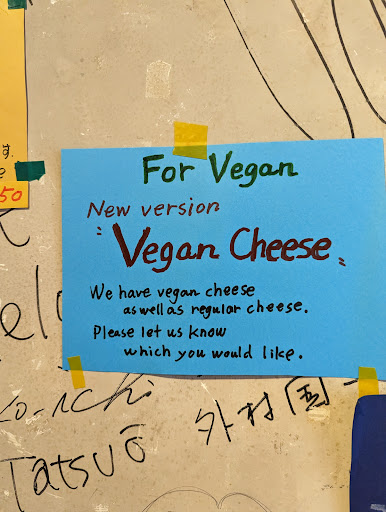 For Vegan
New version
"Vegan Cheese"
We have vegan cheese
as well as regular cheese.
Please let us know
which you would like.
す.
50
Tatsuō
外村